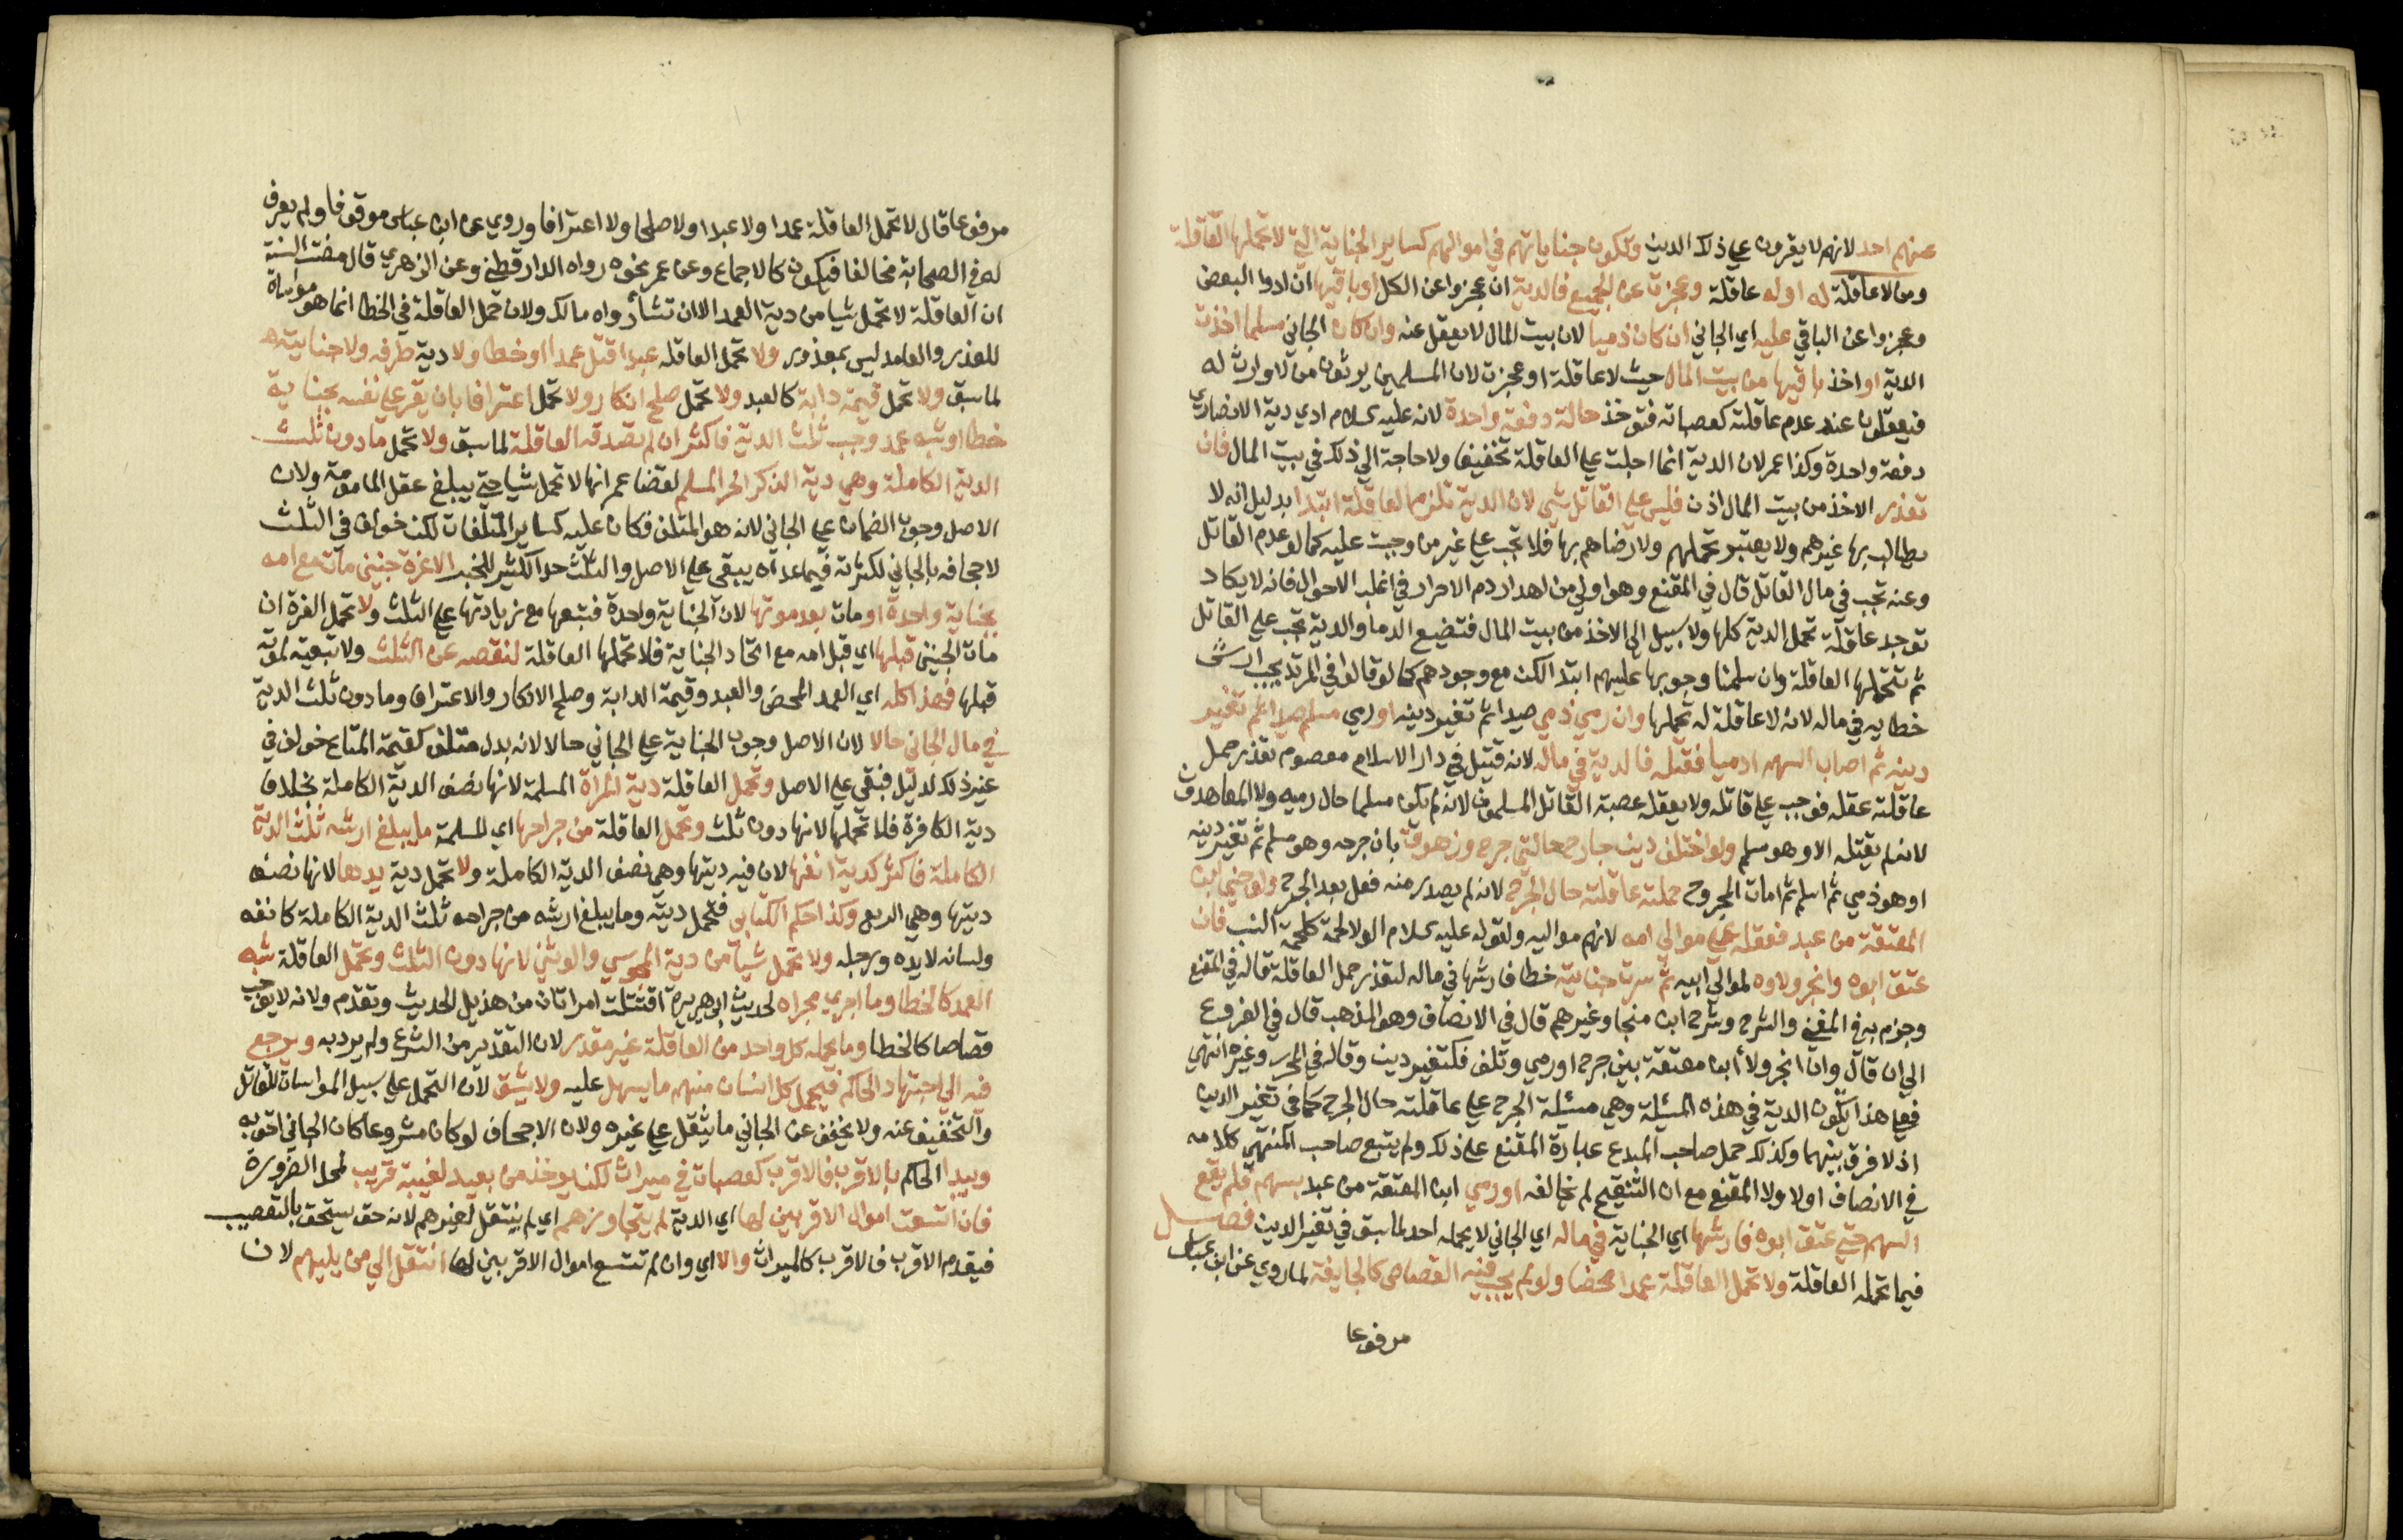 عنهم احد لانهم لا يقرون علي ذلك الدين وتكون جناياتهم في اموالهم كساير الجناية التي لا تحملها العاقلة
ومن لا عاقلة له او له عاقلة وعجزت عن الجميع فالدية ان عجزوا عن الكل او باقيها ان ادوا البعض
وعجزوا عن الباقي عليه اي الجاني ان كان ذميا لان بيت المال لا يعقل عنه وان كان الجاني مسلما اخذت
الدية او اخذ باقيها من بيت المال حيث لا عاقلة او عجزت لان المسلمين يرثون من لا وارث له
فيعقلون عند عدم عاقلته كعصباته فتوخذ حالة دفعة واحدة لانه عليه السلام ادي دية الانصاري
دفعة واحدة وكذا عمر لان الدية انما اجلت علي العاقلة تخفيفا ولا حاجة الي ذلك في بيت المال فان
تعذر الاخذ من بيت المال اذن فليس علي القاتل شي لان الدية تلزم العاقلة ابتدا بدليل انه لا
يطالب بها غيرهم ولا يعتبر تحملهم ولا رضاهم بها فلا تجب علي غير من وجبت عليه كما لو عدم القاتل
وعنه تجب في مال القاتل قال في المقنع وهو اولي من اهدار دم الاحرار في اغلب الاحوال فانه لا يكاد
توجد عاقلة تحمل الدية كلها ولا سبيل الي الاخذ من بيت المال فتضيع الدما والدية تجب علي القاتل
ثم تتحملها العاقلة وان سلمنا وجوبها عليهم ابتدا لكن مع وجودهم كما لو قالوا في المرتد يجب ارش
خطايه في ماله لانه لا عاقلة له تحملها وان رمي ذمي صيدا ثم تغير دينه او رمي مسلم صيدا ثم تغير
دينه ثم اصاب السهم ادميا فقتله فالدية في ماله لانه قتيل في دار الاسلام معصوم تعذر حمل
عاقلة عقله فوجب علي قاتله ولا يعقله عصبة القاتل المسلمون لانه لم يكن مسلما حال رميه ولا المعاهدون
لانه لم يقتله الا وهو مسلم ولو اختلف دين جارح حالتي جرح وزهوق بان جرحه وهو مسلم ثم تغير دينه
او هو ذمي ثم اسلم ثم مات المجروح حملته عاقلته حال الجرح لانه لم يصدر منه فعل بعد الجرح ولو جني ابن
المعتقة من عبد فعقله علي موالي امه لانهم مواليه ولقوله عليه السلام الولا لحمة كلحمة النسب فان
عتق ابوه وانجر ولاوه لموالي ابيه ثم سرت جنايته خطا فارشها في ماله لتعذر حمل العاقلة قاله في المقنع
وجزم به في المغني والشرح وشرح ابن منجا وغيرهم قال في الانصاف وهو المذهب قال في الفروع
الي ان قال وان انجر ولا ابن معتقة بين جرح او رمي وتلف فكتغير دين وقاله في المحرر وغيره انتهي
فعلي هذا يكون الدية في هذه المسئلة وهي مسئلة الجرح علي عاقلته حال الجرح كما في تغير الدين
اذ لا فرق بينهما وكذلك حمل صاحب المبدع عبارة المقنع علي ذلك ولم يتبع صاحب المنتهي كلامه
في الانصاف اولا ولا المقنع مع ان التنقيح لم يخالفه او رمي ابن المعتقة من عبد بسهم فلم يقع
السهم حتي عتق ابوه فارشها اي الجناية في ماله اي الجاني لا يحمله احد لما سبق في تغير الدين فصل
فيما تحمله العاقلة ولا تحمل العاقلة عمدا محضا ولو لم يجب فيه القصاص كالجايفة لما روي عن ابن عباس
مرفوعا
مرفوعا قال لا تحمل العاقلة عمدا ولا عبدا ولا صلحا ولا اعترافا وروي عن ابن عباس موقوفا ولم يعرف
له في الصحابة مخالفا فيكون كالاجماع وعن عمر نحوه رواه الدارقطني وعن الزهري قال مضت السنة
ان العاقلة لا تحمل شيا من دية العمد الا ان تشا رواه مالك ولان حمل العاقلة في الخطا انما هو مواساة
للعذر والعامد ليس بمعذور ولا تحمل العاقله عبدا قتل عمدا او خطا ولا دية طرفه ولا جنايته
لما سبق ولا تحمل قيمة دابة كالعبد ولا تحمل صلح انكار ولا تحمل اعترافا بان يقر علي نفسه بجناية
خطا او شبه عمد وجب ثلث الدية فاكثر ان لم تصدقه العاقلة لما سبق ولا تحمل ما دون ثلث
الدية الكاملة وهي دية الذكر الحر المسلم لقضا عمر انها لا تحمل شيا حتي يبلغ عقل المامومة ولان
الاصل وجوب الضمان علي الجاني لانه هو المتلف فكان عليه كساير المتلفات لكن خولف في الثلث
لاجحافه بالجاني لكثرته فيما عداه يبقي علي الاصل والثلث حد الكثير للخبر الا غرة جنين مات مع امه
بجناية واحدة او مات بعد موتها لان الجناية واحدة فتتبعها مع زيادتها علي الثلث ولا تحمل الغرة ان
مات الجنين قبلها اي قبل امه مع اتحاد الجناية فلا تحملها العاقلة لنقصه عن الثلث ولا تبعية لموته
قبلها فهذا كله اي العمد المحض والعبد وقيمة الدابة وصلح الانكار والاعتراف وما دون ثلث الدية
في مال الجاني حالا لان الاصل وجوب الجناية علي الجاني حالا لانه بدل متلف كقيمة المتاع خولف في
غير ذلك لدليل فبقي علي الاصل وتحمل العاقلة دية المراة المسلمة لانها نصف الدية الكاملة بخلاف
دية الكافرة فلا تحملها لانها دون ثلث وتحمل العاقلة من جراحها اي المسلمة ما يبلغ ارشه ثلث الدية
الكاملة فاكثر كدية انفها لان فيه ديتها وهي نصف الدية الكاملة ولا تحمل دية يدها لانها نصف
ديتها وهي الربع وكذا حكم الكتابي فتحمل ديته وما يبلغ ارشه من جراحه ثلث الدية الكاملة كانفه
ولسانه لا يده ورجله ولا تحمل شيا من دية المجوسي والوثني لانها دون الثلث وتحمل العاقلة شبه
العمد كالخطا وما اجري مجراه لحديث ابي هريرة اقتتلت امراتان من هذيل الحديث وتقدم ولانه لا يوجب
قصاصا كالخطا وما يحمله كل واحد من العاقلة غير مقدر لان التقدير من الشرع ولم يرد به ويرجع
فيه الي اجتهاد الحاكم فيحمل كل انسان منهم ما يسهل عليه ولا يشق لان التحمل علي سبيل المواسات للقاتل
والتخفيف عنه ولا يخفف عن الجاني ما يثقل علي غيره ولان الاجحاف لو كان مشروعا كان الجاني احق به
ويبدا الحاكم بالاقرب فالاقرب كعصبات في ميراث لكن يوخذ من بعيد لغيبة قريب لمحل الضرورة
فان اتسعت اموال الاقربين لها اي الدية لم يتجاوزهم اي لم ينتقل لغيرهم لانه حق يستحق بالتعصيب
فيقدم الاقرب فالاقرب كالميراث والا اي وان لم تتسع اموال الاقربين لها انتقل الي من يليهم لان